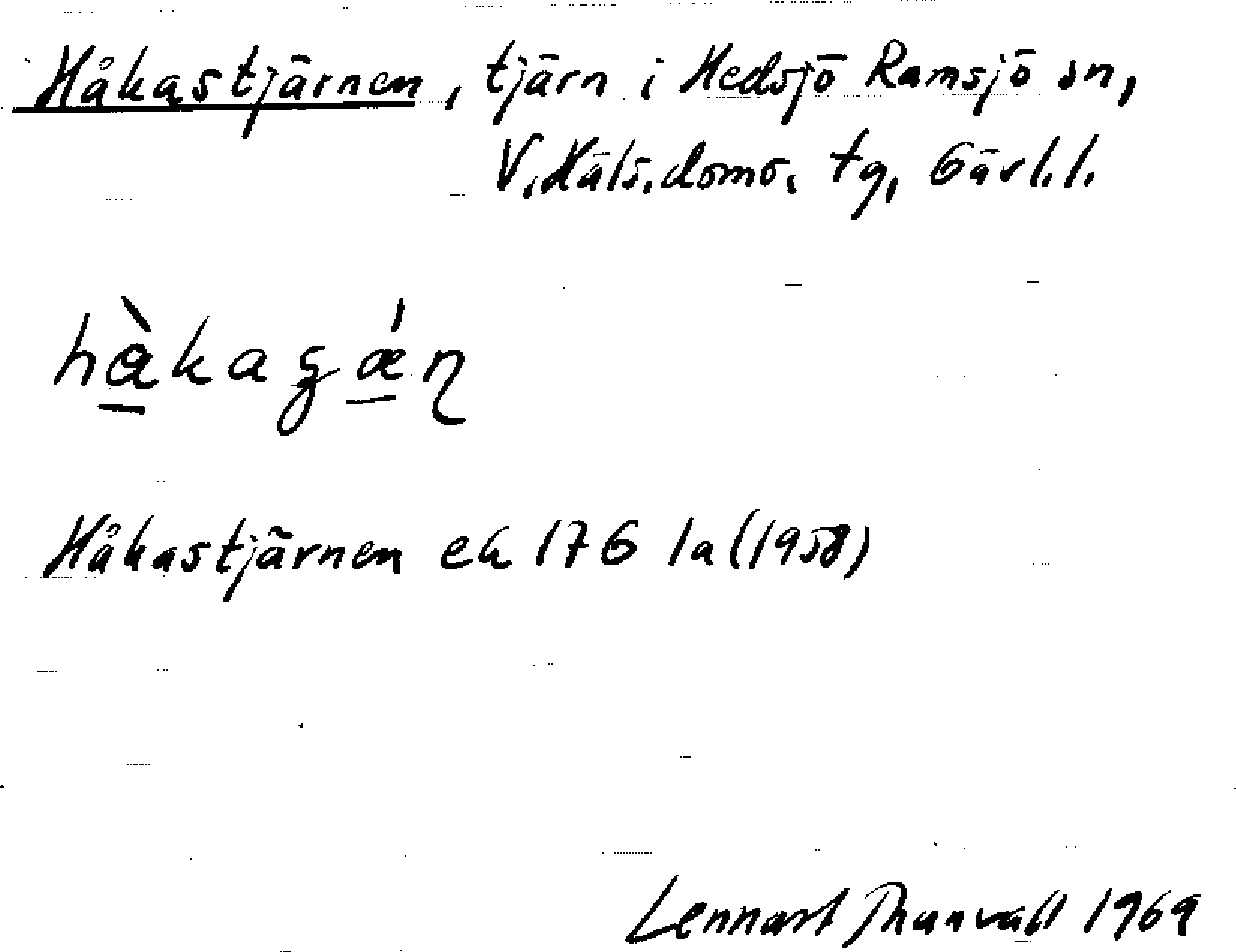 Håkastjärnen, tjärn i Hedsjö Ramsjö sn,
V. Häls. doms. tg, Gävl. l.
hàkaʒǽɳ
Håkastjärnen ek 176 1a (1958)
Lennart Thunvall 1969